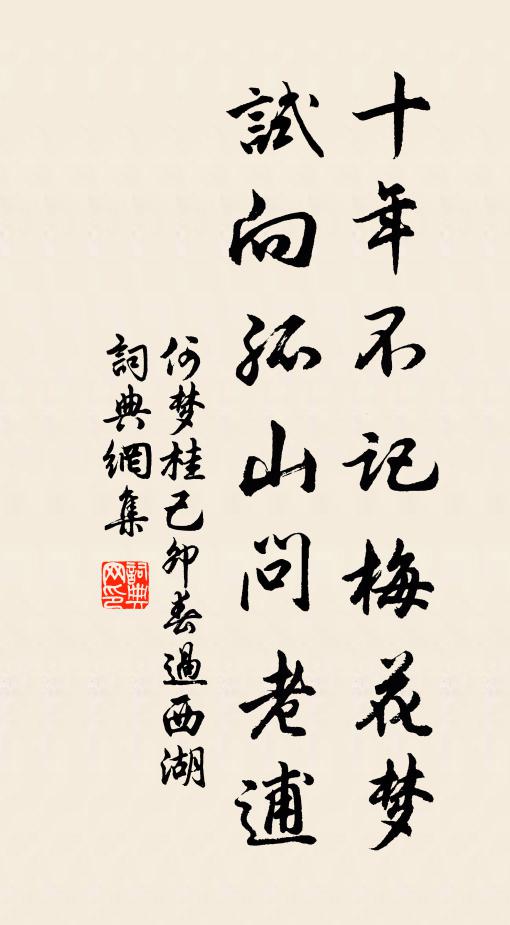 十年不记梅花梦
試向孤山问老逋
何梦桂己卯春過西湖
詞典網集
詞典网印